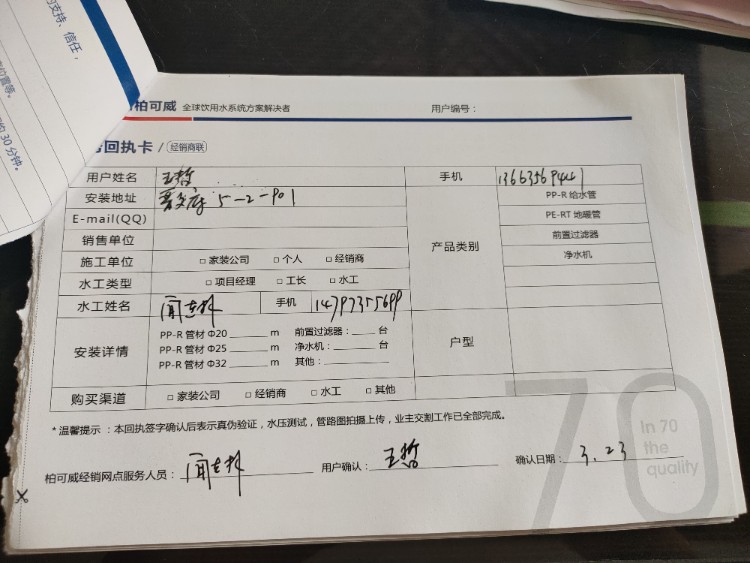 的支持、信任，
位置等。
约 30 分钟。
柏可威 全球饮用水系统方案解决者 用户编号：
回执卡 / 经销商联
用户姓名 王哲 手机
安装地址 5-2-901 产品类别 PP-R 给水管
E-mail(QQ) PE-RT 地暖管
销售单位 前置过滤器
施工单位 □ 家装公司 □ 个人 □ 经销商 净水机
水工类型 □ 项目经理 □ 工长 □ 水工
水工姓名 手机
安装详情 PP-R 管材 Φ20 ______ m 前置过滤器：____ 台 户型
PP-R 管材 Φ25 ______ m 净水机：______ 台
PP-R 管材 Φ32 ______ m 其他：______
购买渠道 □ 家装公司 □ 经销商 □ 水工 □ 其他
* 温馨提示：本回执签字确认后表示真伪验证，水压测试，管路图拍摄上传，业主交割工作已全部完成。
70
In 70
the
quality
柏可威经销网点服务人员： 用户确认：王哲 确认日期：3.23